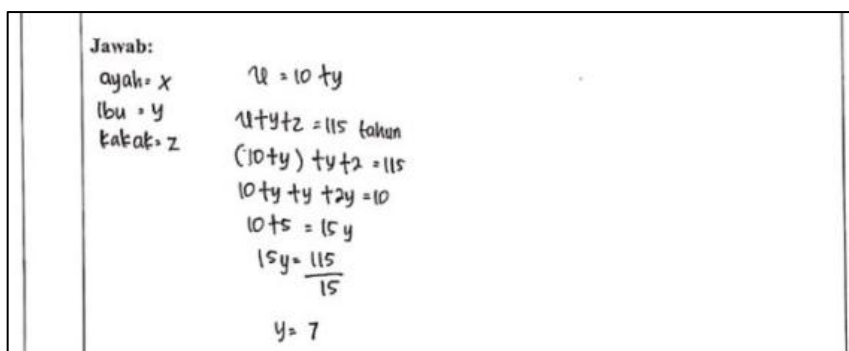 Jawab:
ayah = x
Ibu = y
kakak = z
x = 10 + y
x + y + z = 115 tahun
(10 + y) + y + z = 115
10 + y + y + 2y = 10
10 + 5 = 15 y
15y = 115
15
y = 7